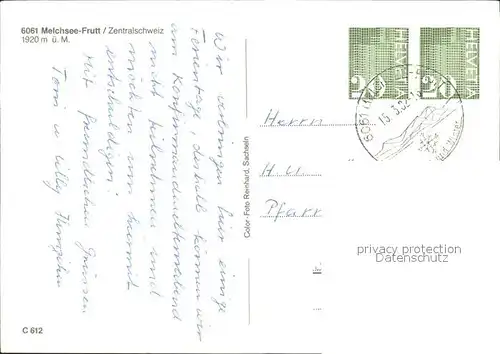 6061 Melchsee-Frutt / Zentralschweiz
1920 m ü. M.
Wir verbringen hier einige
Ferientage, deshalb können wir
am Konfirmandenelternabend
nicht teilnehmen und
möchten uns hiermit
entschuldigen!
Mit freundlichen Grüssen
Toni u. Willy
C 612
Color-Foto Reinhard, Sachseln
HELVETIA HELVETIA
6061
Herrn
Pfarr
privacy protection
Datenschutz